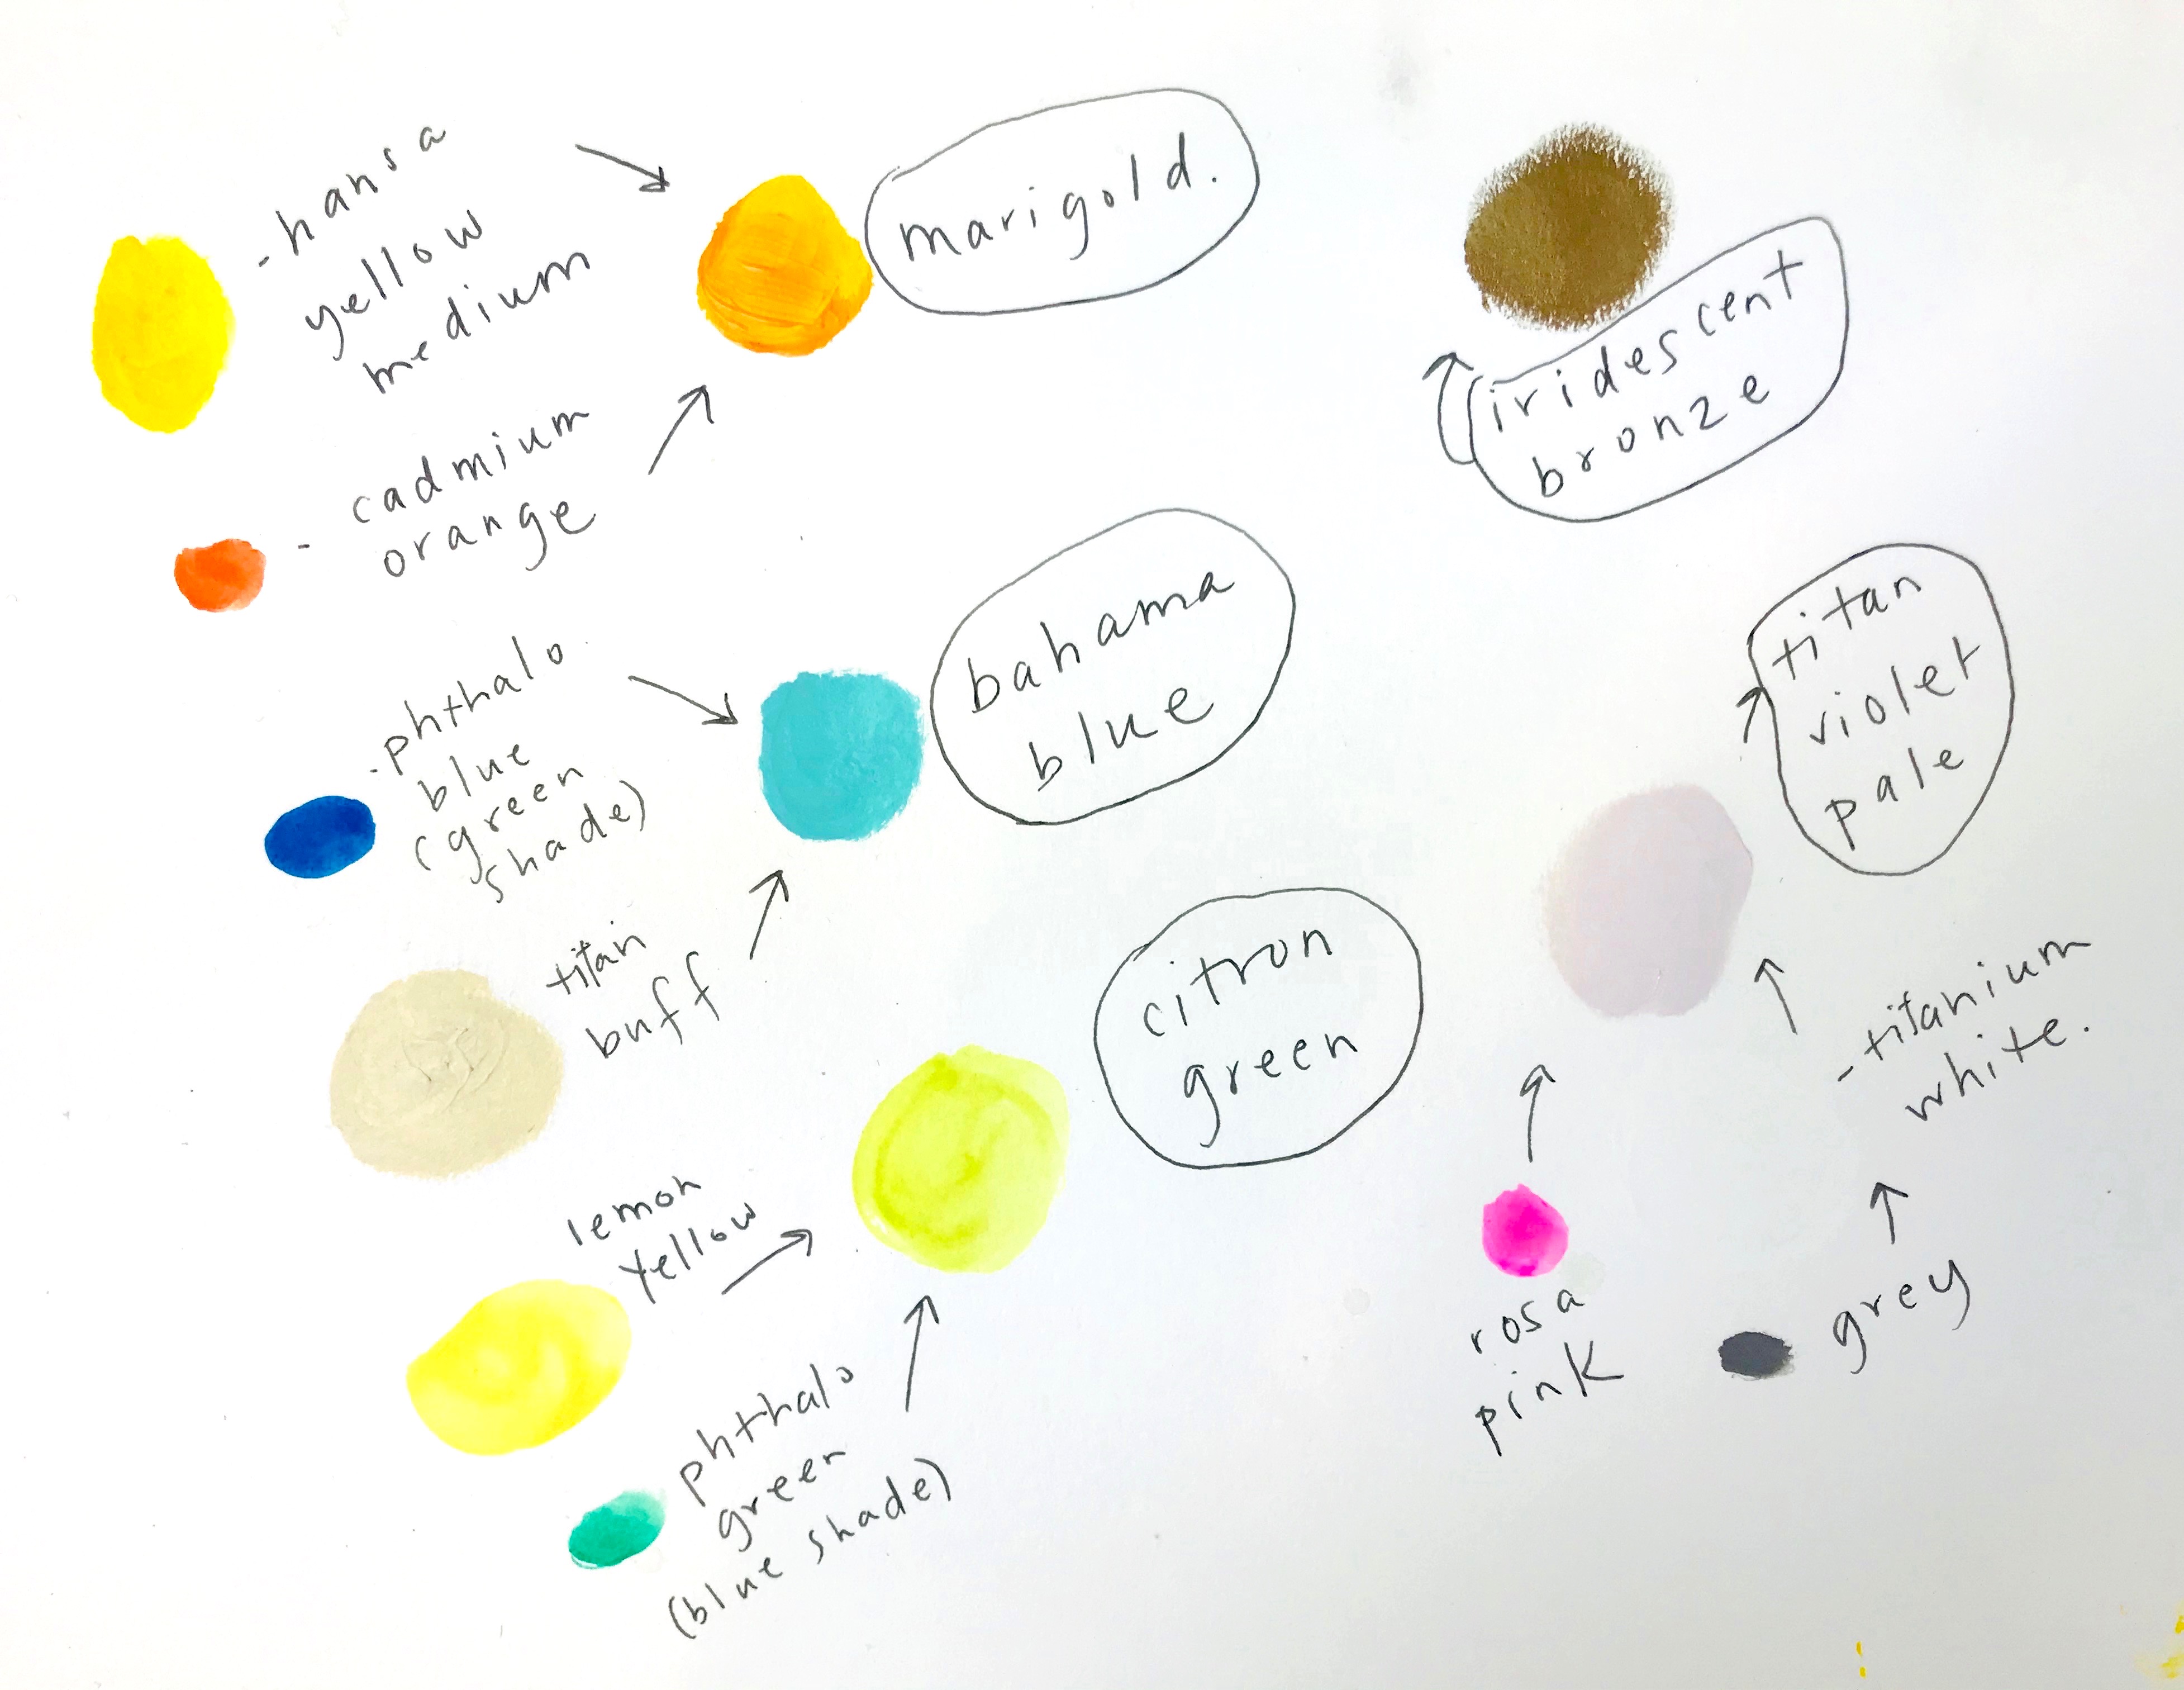 - hansa
yellow
medium
marigold.
- cadmium
orange
- phthalo
blue
(green
shade)
bahama
blue
titan
buff
lemon
Yellow
citron
green
phthalo
green
(blue shade)
iridescent
bronze
titan
violet
pale
- titanium
white.
rosa
pink
grey